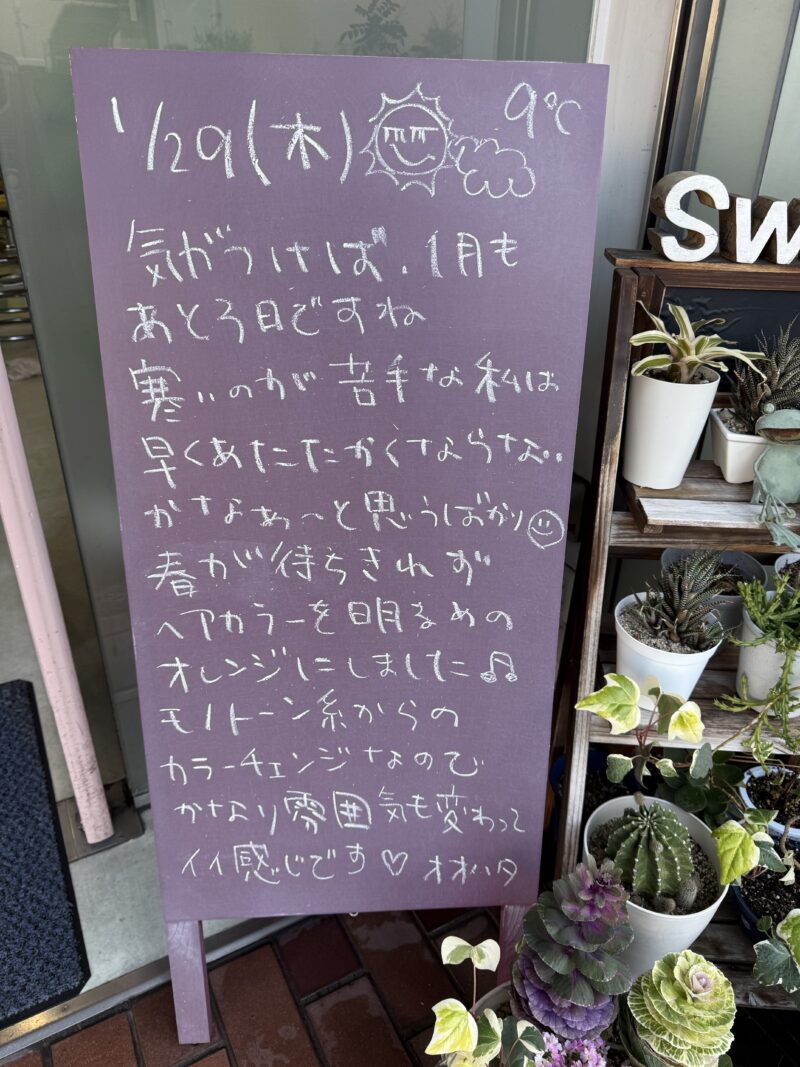 1/29(木) 9℃
気がつけば、1月も
あと3日ですね
寒いのが苦手な私は
早くあたたかくならない
かなぁ〜と思うばかり
春が待ちきれず
ヘアカラーを明るめの
オレンジにしました♫
モノトーン系からの
カラーチェンジなので
かなり雰囲気も変わって
イイ感じです♡ オオハタ
Sw